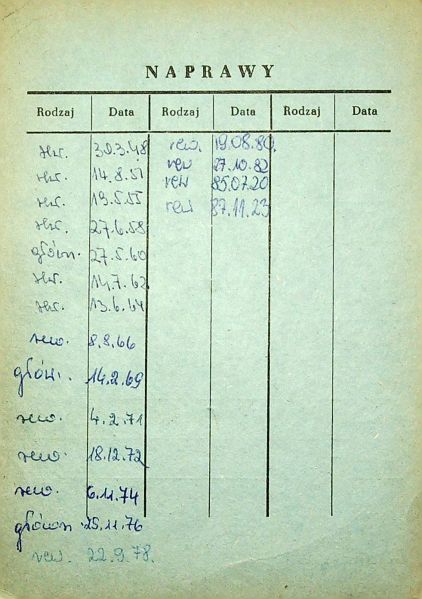 NAPRAWY
Rodzaj Data Rodzaj Data Rodzaj Data
śkr. 30.3.48 rew. 19.08.80.
śkr. 14.8.51 rew 27.10.82
śkr. 19.5.55 rew 85.07.20
śkr. 27.6.58 rew 87.11.23
główn. 27.5.60
śkr. 14.7.62
śkr. 13.6.64
rew. 8.8.66
główn. 14.2.69
rew. 4.2.71
rew. 18.12.72
rew. 6.11.74
główn. 25.11.76
rew. 22.9.78.